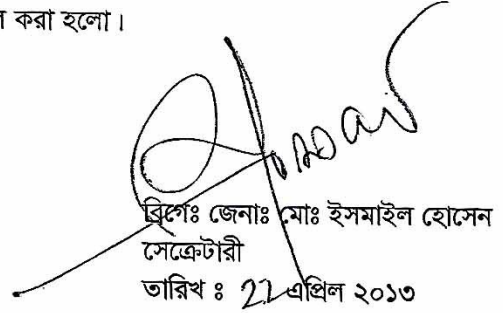 করা হলো।
ব্রিগেঃ জেনাঃ মোঃ ইসমাইল হোসেন
সেক্রেটারী
তারিখ ঃ এপ্রিল ২০১৩